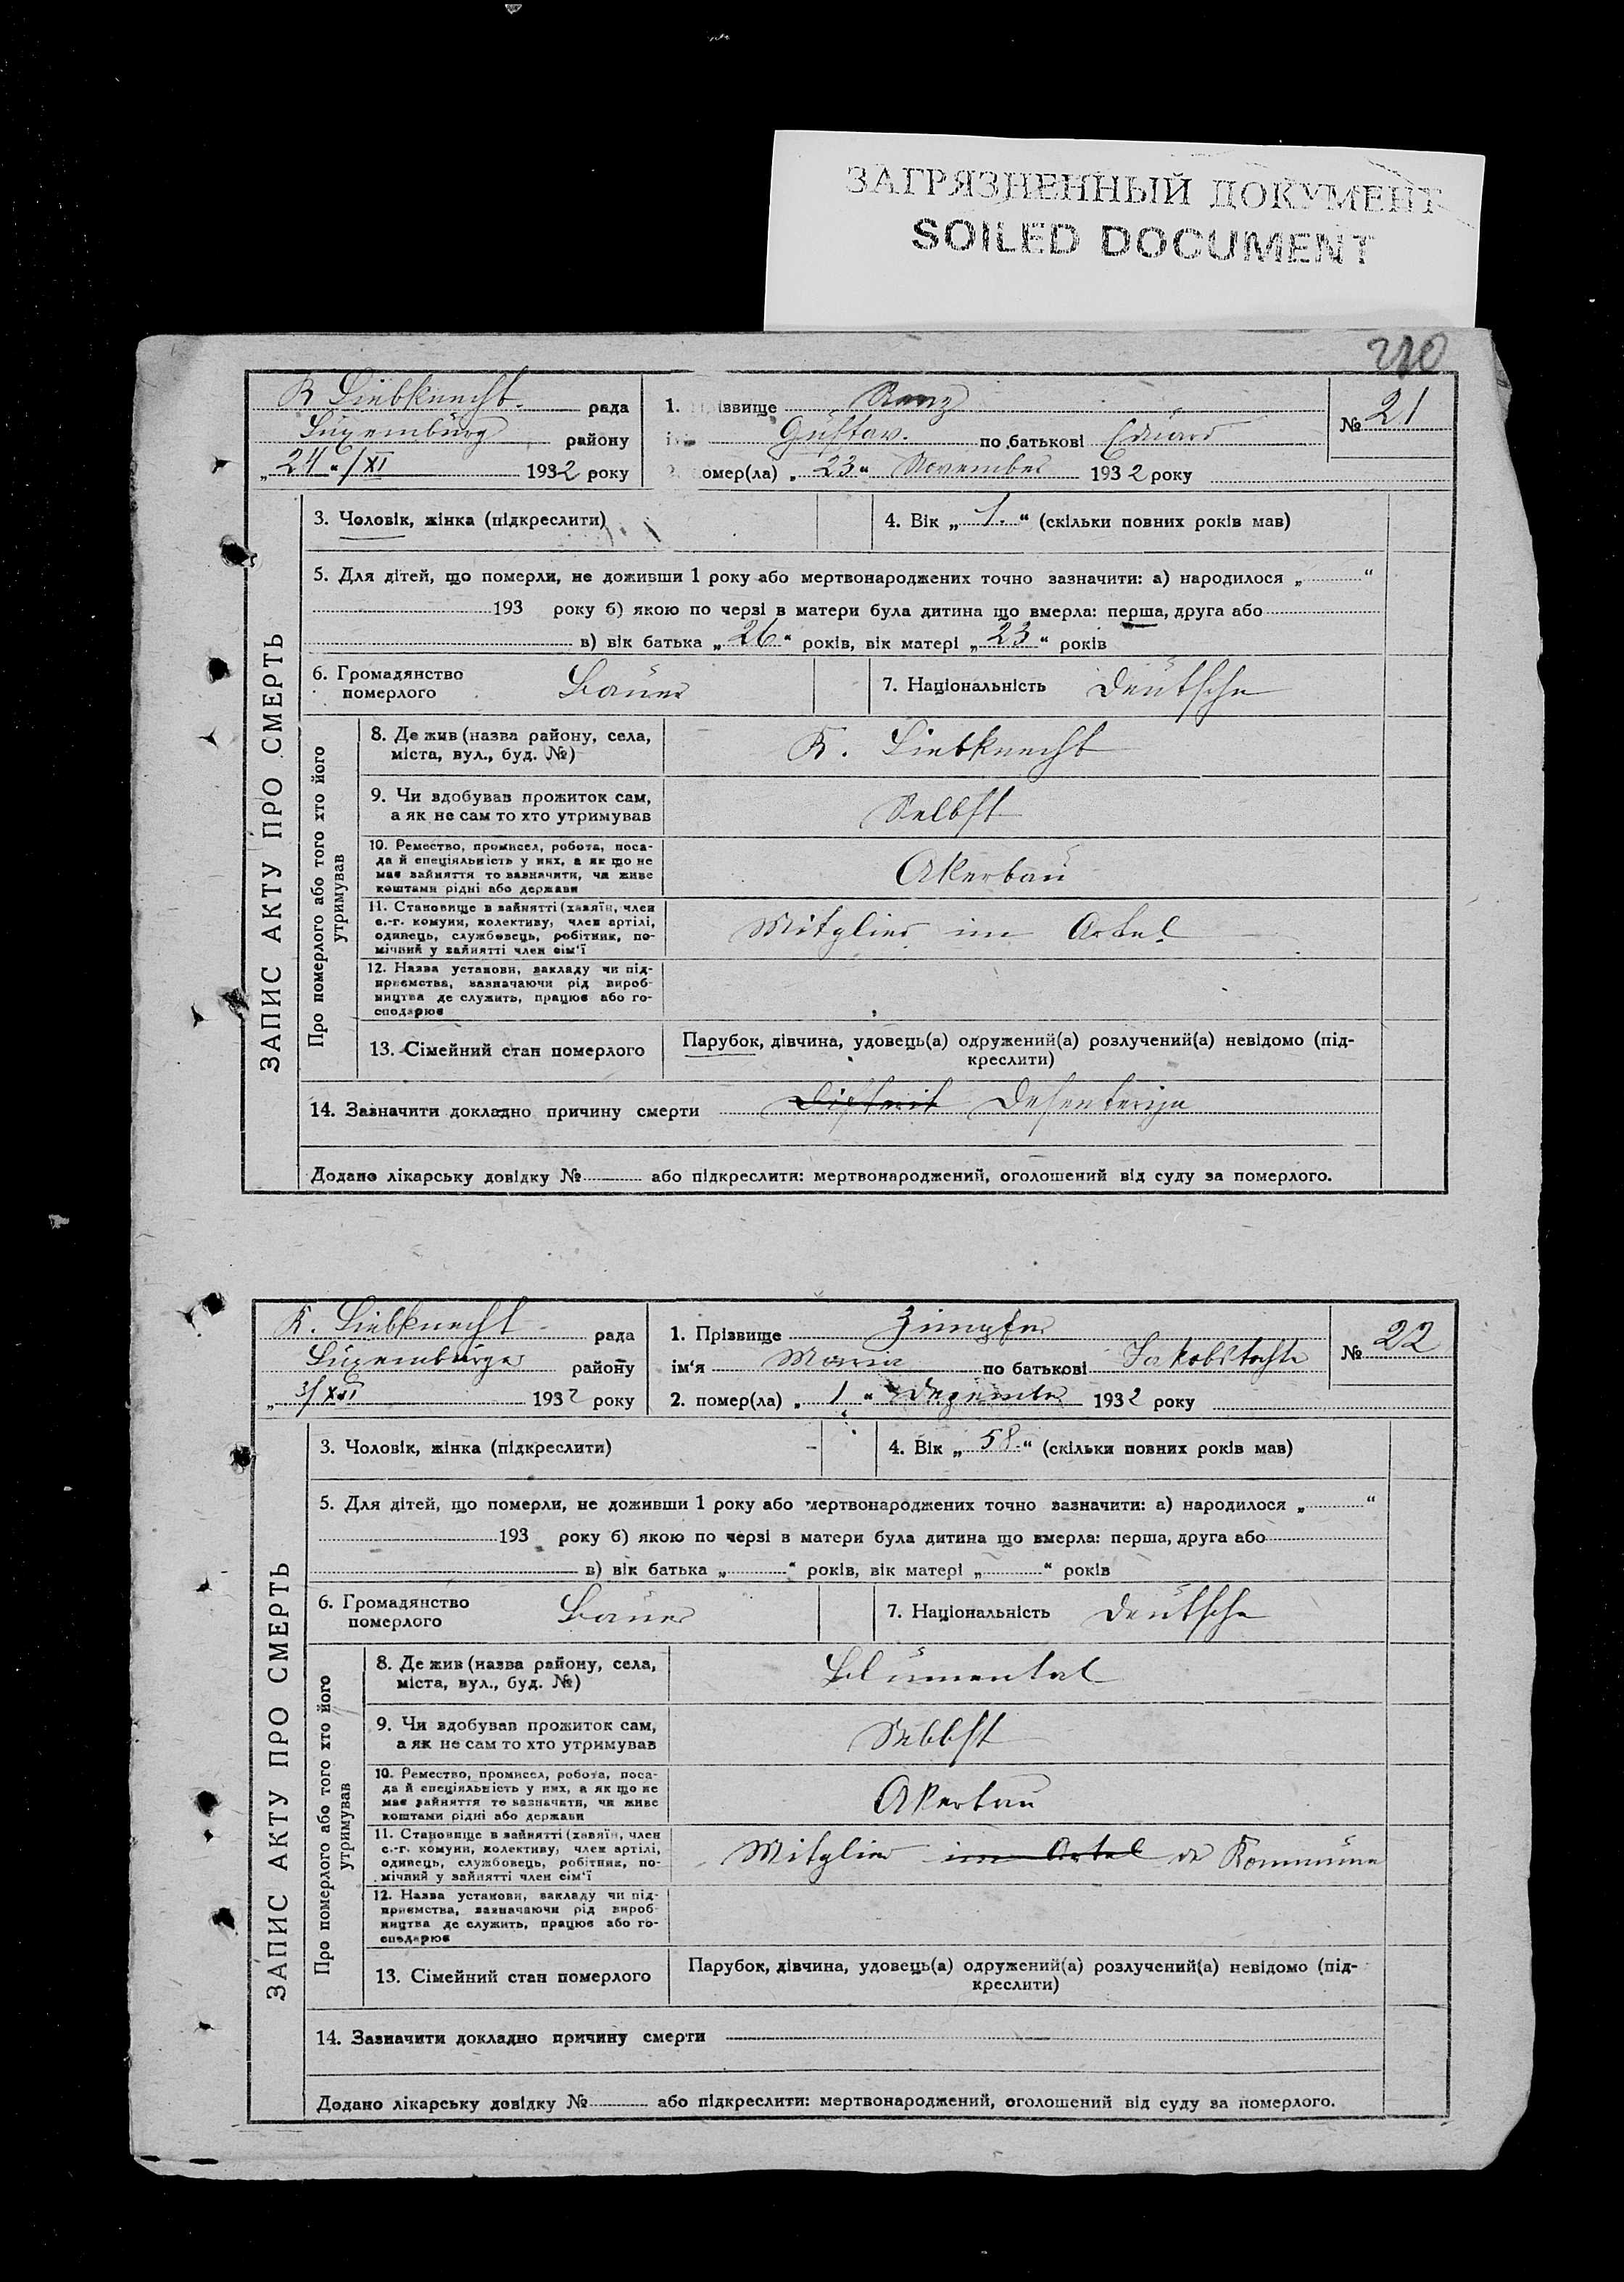 ЗАГРЯЗНЕННЫЙ ДОКУМЕНТ
SOILED DOCUMENT
210
ЗАПИС АКТУ ПРО СМЕРТЬ
K Liebknecht рада
Luxemburg району
„24“/XI 1932 року
1. Прізвище Renz
Gustav. по батькові Eduard
помер(ла) „23“ November 1932 року
№ 21
3. Чоловік, жінка (підкреслити)
4. Вік „1.“ (скільки повних років мав)
5. Для дітей, що померли, не доживши 1 року або мертвонароджених точно зазначити: а) народилося „ “
193 року б) якою по черзі в матери була дитина що вмерла: перша, друга або
в) вік батька „26“ років, вік матері „23“ років
6. Громадянство
померлого Bauer
7. Національність Deutsche
Про померлого або того хто його
утримував
8. Де жив (назва району, села,
міста, вул., буд. №)
K. Liebknecht
9. Чи здобував прожиток сам,
а як не сам то хто утримував
Selbst
10. Ремество, промисел, робота, поса-
да й спеціяльність у них, а як що не
має зайняття то зазначити, чи живе
коштами рідні або держави
Akerbau
11. Становище в зайнятті (хазяїн, член
с.-г. комуни, колективу, член артілі,
одинець, службовець, робітник, по-
мічний у зайнятті член сім'ї
Mitglied im Artel
12. Назва установи, закладу чи під-
приємства, зазначаючи рід вироб-
ництва де служить, працює або го-
сподарює
13. Сімейний стан померлого
Парубок, дівчина, удовець(а) одружений(а) розлучений(а) невідомо (під-
креслити)
14. Зазначити докладно причину смерти Difterit Desenterije
Додано лікарську довідку № або підкреслити: мертвонароджений, оголошений від суду за померлого.
ЗАПИС АКТУ ПРО СМЕРТЬ
K. Liebknecht рада
Luxemburger району
„3/XII 1932 року
1. Прізвище Zimpfer
ім'я Maria по батькові Jakobstochter
2. помер(ла) „1“ Dezember 1932 року
№ 22
3. Чоловік, жінка (підкреслити)
4. Вік „58.“ (скільки повних років мав)
5. Для дітей, що померли, не доживши 1 року або мертвонароджених точно зазначити: а) народилося „ “
193 року б) якою по черзі в матери була дитина що вмерла: перша, друга або
в) вік батька „ “ років, вік матері „ “ років
6. Громадянство
померлого Bauer
7. Національність Deutsche
Про померлого або того хто його
утримував
8. Де жив (назва району, села,
міста, вул., буд. №)
Blumental
9. Чи здобував прожиток сам,
а як не сам то хто утримував
Selbst
10. Ремество, промисел, робота, поса-
да й спеціяльність у них, а як що не
має зайняття то зазначити, чи живе
коштами рідні або держави
Akerbau
11. Становище в зайнятті (хазяїн, член
с.-г. комуни, колективу, член артілі,
одинець, службовець, робітник, по-
мічний у зайнятті член сім'ї
Mitglied im Artel der Kommune
12. Назва установи, закладу чи під-
приємства, зазначаючи рід вироб-
ництва де служить, працює або го-
сподарює
13. Сімейний стан померлого
Парубок, дівчина, удовець(а) одружений(а) розлучений(а) невідомо (під-
креслити)
14. Зазначити докладно причину смерти
Додано лікарську довідку № або підкреслити: мертвонароджений, оголошений від суду за померлого.